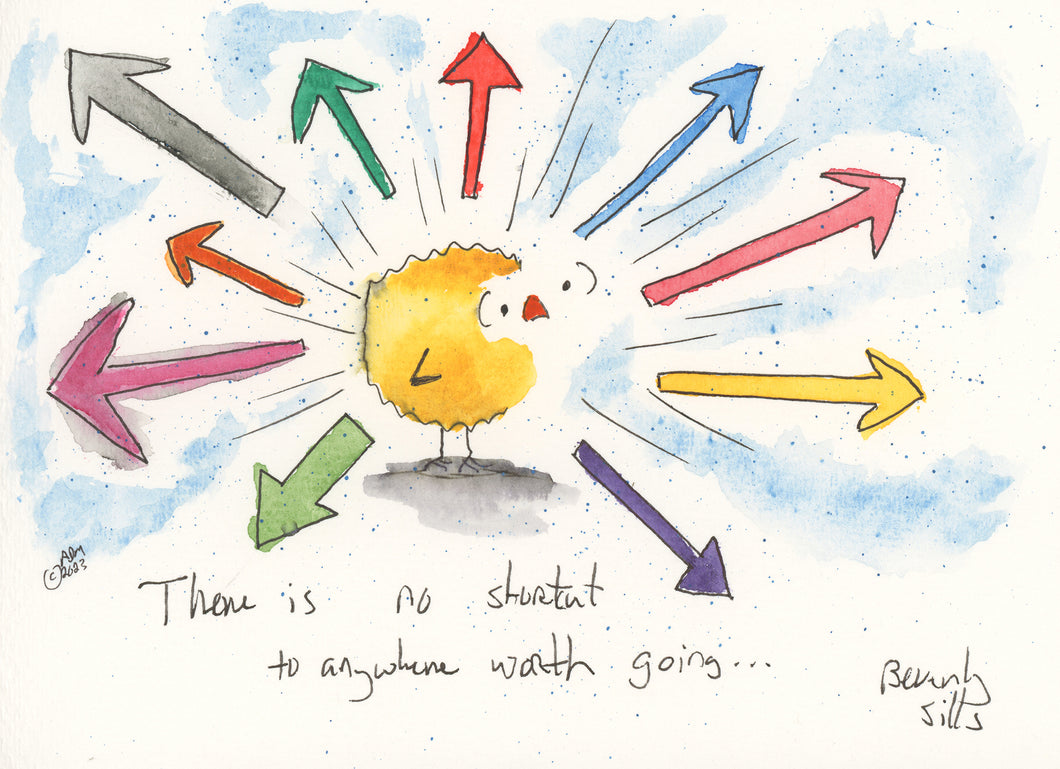 ADM
©2023
There is no shortcut
to anywhere worth going...
Beverly
Sills